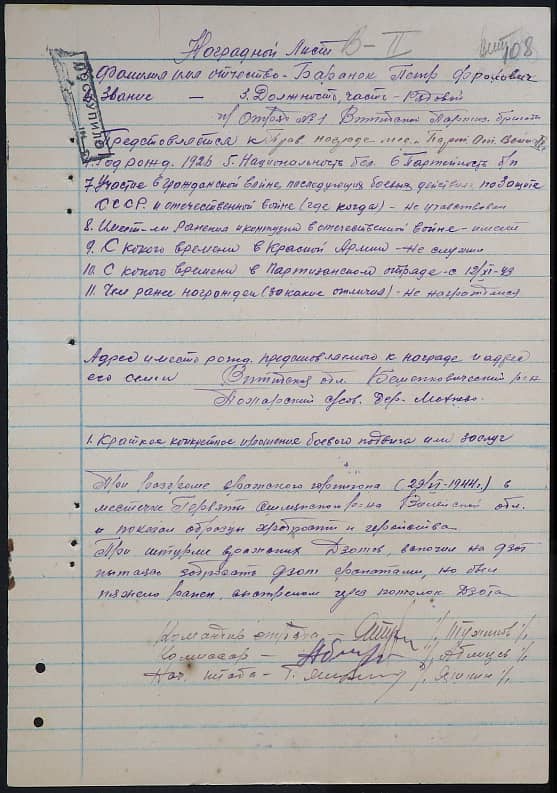 Наградной Лист В-II
108
1. Фамилия имя отчество - Баранок Петр Фролович
2. Звание — 3. Должность, часть - Рядовой
п/ Отряд №1 Витебской Партиз. бригады
Представляется к Прав. награде мед. "Парт. От. Войны"
4. Год рожд. 1926 5. Национальность бел. 6 Партийность б/п
7. Участие в гражданской войне, последующих боевых действиях по защите
СССР и отечественной войне (где когда) - не участвовал
8. Имеет-ли ранения и контузии в отечественной войне - имеет
9. С какого времени в Красной Армии - Не служил
10. С какого времени в Партизанском отряде - с 12/XI-43
11. Чем ранее награжден (за какие отличия) - не награждался
Адрес и место рожд. представляемого к награде и адрес
его семьи Витебская обл. Бешенковический р-н
Пожарский с/сов. дер.
1. Краткое конкретное изложение боевого подвига или заслуг
При разгроме вражеского гарнизона (29/VI-1944г.) в
местечке Гервяты р-на Вилейской обл.
и показал образцы храбрости и геройства.
При штурме вражеских Дзотов, вскочил на дзот
пытаясь забросать дзот гранатами, но был
тяжело ранен выстрелом через потолок Дзота
Командир отряда -
Комиссар -
Нач. штаба -